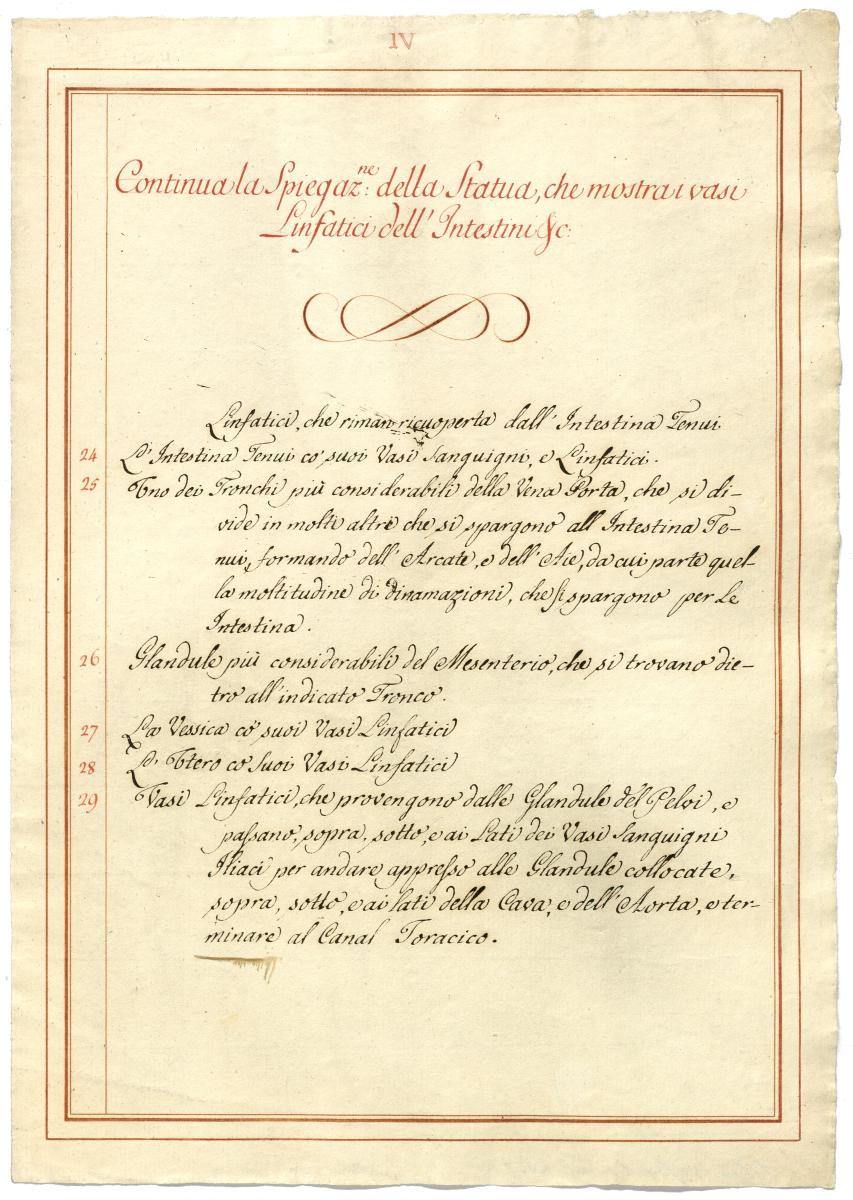 IV
Continua la Spiegaz.ne della Statua, che mostra i vasi
Linfatici dell' Intestini &c:
Linfatici, che riman ricuoperta dall' Intestina Tenui
24 L' Intestina Tenui co' suoi Vasi Sanguigni, e Linfatici.
25 Uno dei Tronchi più considerabili della Vena Porta, che si di-
vide in molti altri che si spargono all Intestina Te-
nui, formando dell' Arcate, e dell' Aie, da cui parte quel-
la moltitudine di dinamazioni, che si spargono per Le
Intestina.
26 Glandule più considerabili del Mesenterio, che si trovano die-
tro all' indicato Tronco.
27 La Vessica co' suoi Vasi Linfatici
28 L' Utero co' Suoi Vasi Linfatici
29 Vasi Linfatici, che provengono dalle Glandule del Pelvi, e
passano, sopra, sotto, e ai Lati dei Vasi Sanguigni
Iliaci per andare appresso alle Glandule collocate,
sopra, sotto, e ai lati della Cava, e dell' Aorta, e ter-
minare al Canal Toracico.